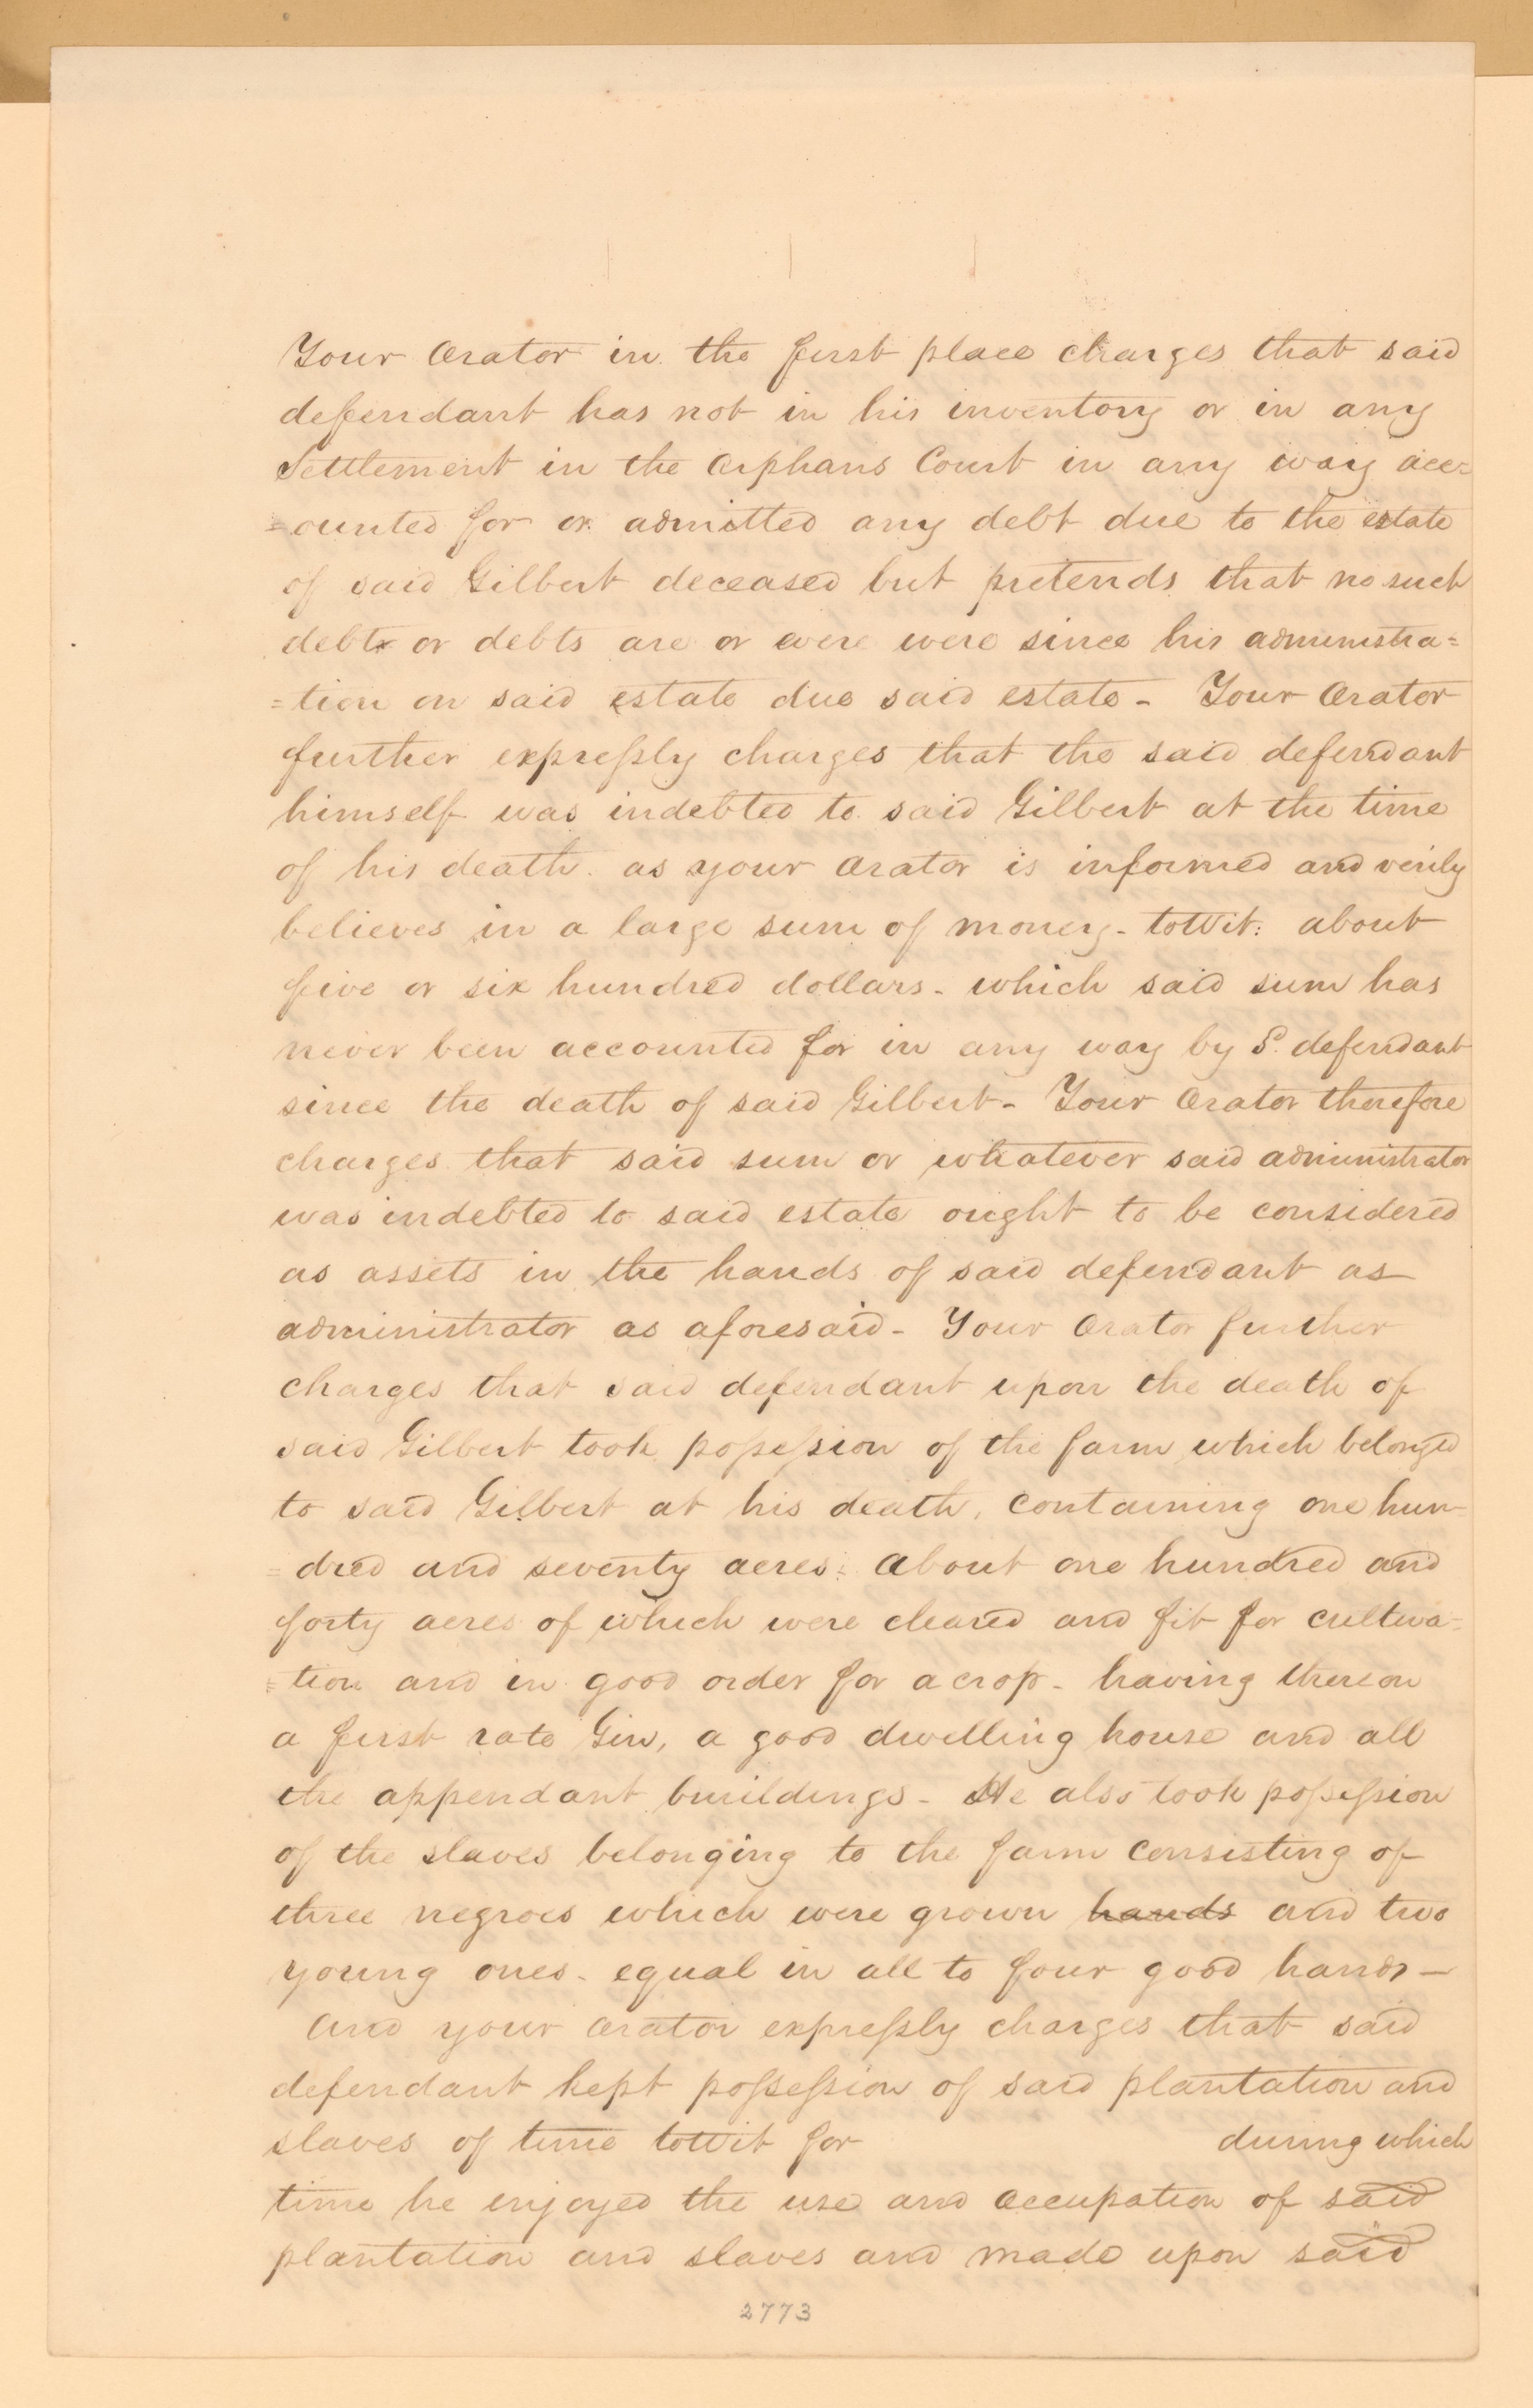 Your Orator in the first place charges that said
defendant has not in his inventory or in any
Settlement in the Orphans Court in any way acc=
=ounted for or admitted any debt due to the estate
of said Gilbert deceased but pretends that no such
debt or debts are or were were since his administra=
=tion on said estate due said estate - Your Orator
further expressly charges that the said defendant
himself was indebted to said Gilbert at the time
of his death. as your Orator is informed and verily
believes in a large sum of money - towit: about
five or six hundred dollars - which said sum has
never been accounted for in any way by Sd. defendant
since the death of said Gilbert - Your Orator therefore
charges that said sum or whatever said administrator
was indebted to said estate ought to be considered
as assets in the hands of said defendant as
administrator as aforesaid - Your Orator further
charges that said defendant upon the death of
said Gilbert took possession of the farm which belonged
to said Gilbert at his death, containing one hun-
=dred and seventy acres: about one hundred and
forty acres of which were cleared and fit for cultiva=
=tion and in good order for a crop - having thereon
a first rate Gin, a good dwelling house and all
the appendant buildings - He also took possession
of the slaves belonging to the farm consisting of
three negroes which were grown hands and two
young ones - equal in all to four good hands —
And your Orator expressly charges that said
defendant kept possession of said plantation and
slaves of time towit for during which
time he enjoyed the use and occupation of said
plantation and slaves and made upon said
2773